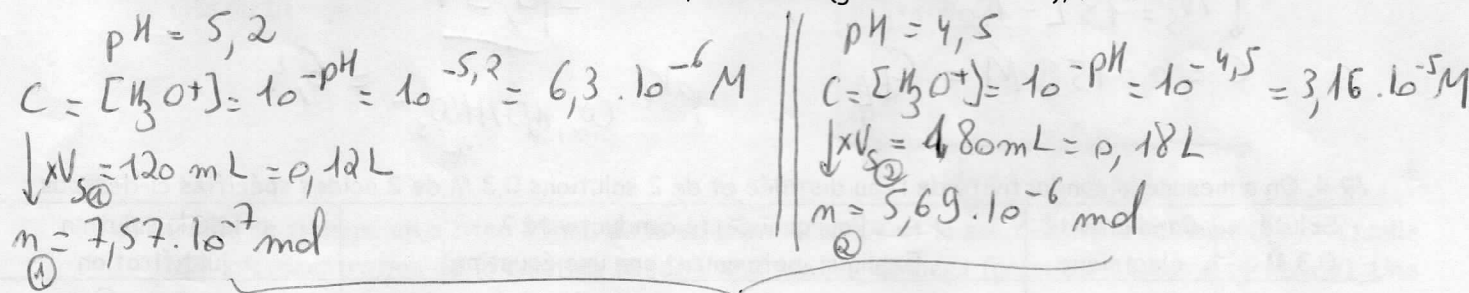 pH = 5,2
C = [H₃O⁺] = 10^-pH = 10^-5,2 = 6,3 . 10^-6 M
↓ xV_S① = 120 mL = 0,12 L
n① = 7,57 . 10^-7 mol
pH = 4,5
C = [H₃O⁺] = 10^-pH = 10^-4,5 = 3,16 . 10^-5 M
↓ xV_S② = 180 mL = 0,18 L
n② = 5,69 . 10^-6 mol